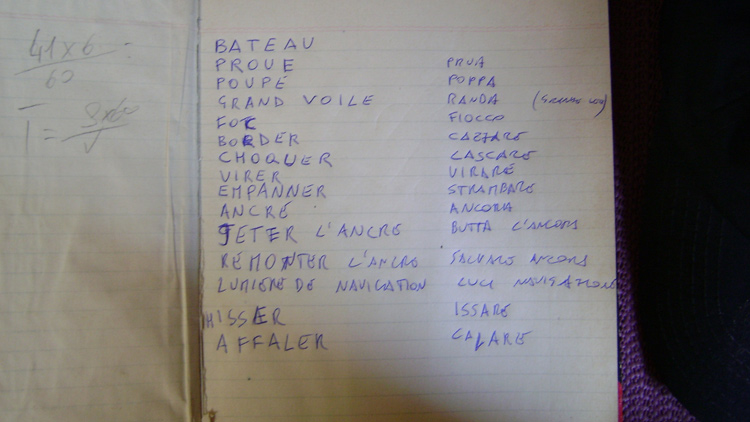 41x6
60
1 =
BATEAU
PROUE PRUA
POUPE POPPA
GRAND VOILE RANDA
FOC FIOCCO
BORDER CAZZARE
CHOQUER LASCARE
VIRER VIRARE
EMPANNER STRAMBARE
ANCRE ANCORA
JETER L'ANCRE BUTTA L'ANCORA
REMONTER L'ANCRE SALPARE ANCORA
LUMIERE DE NAVIGATION LUCI NAVIGAZIONE
HISSER ISSARE
AFFALER CALARE